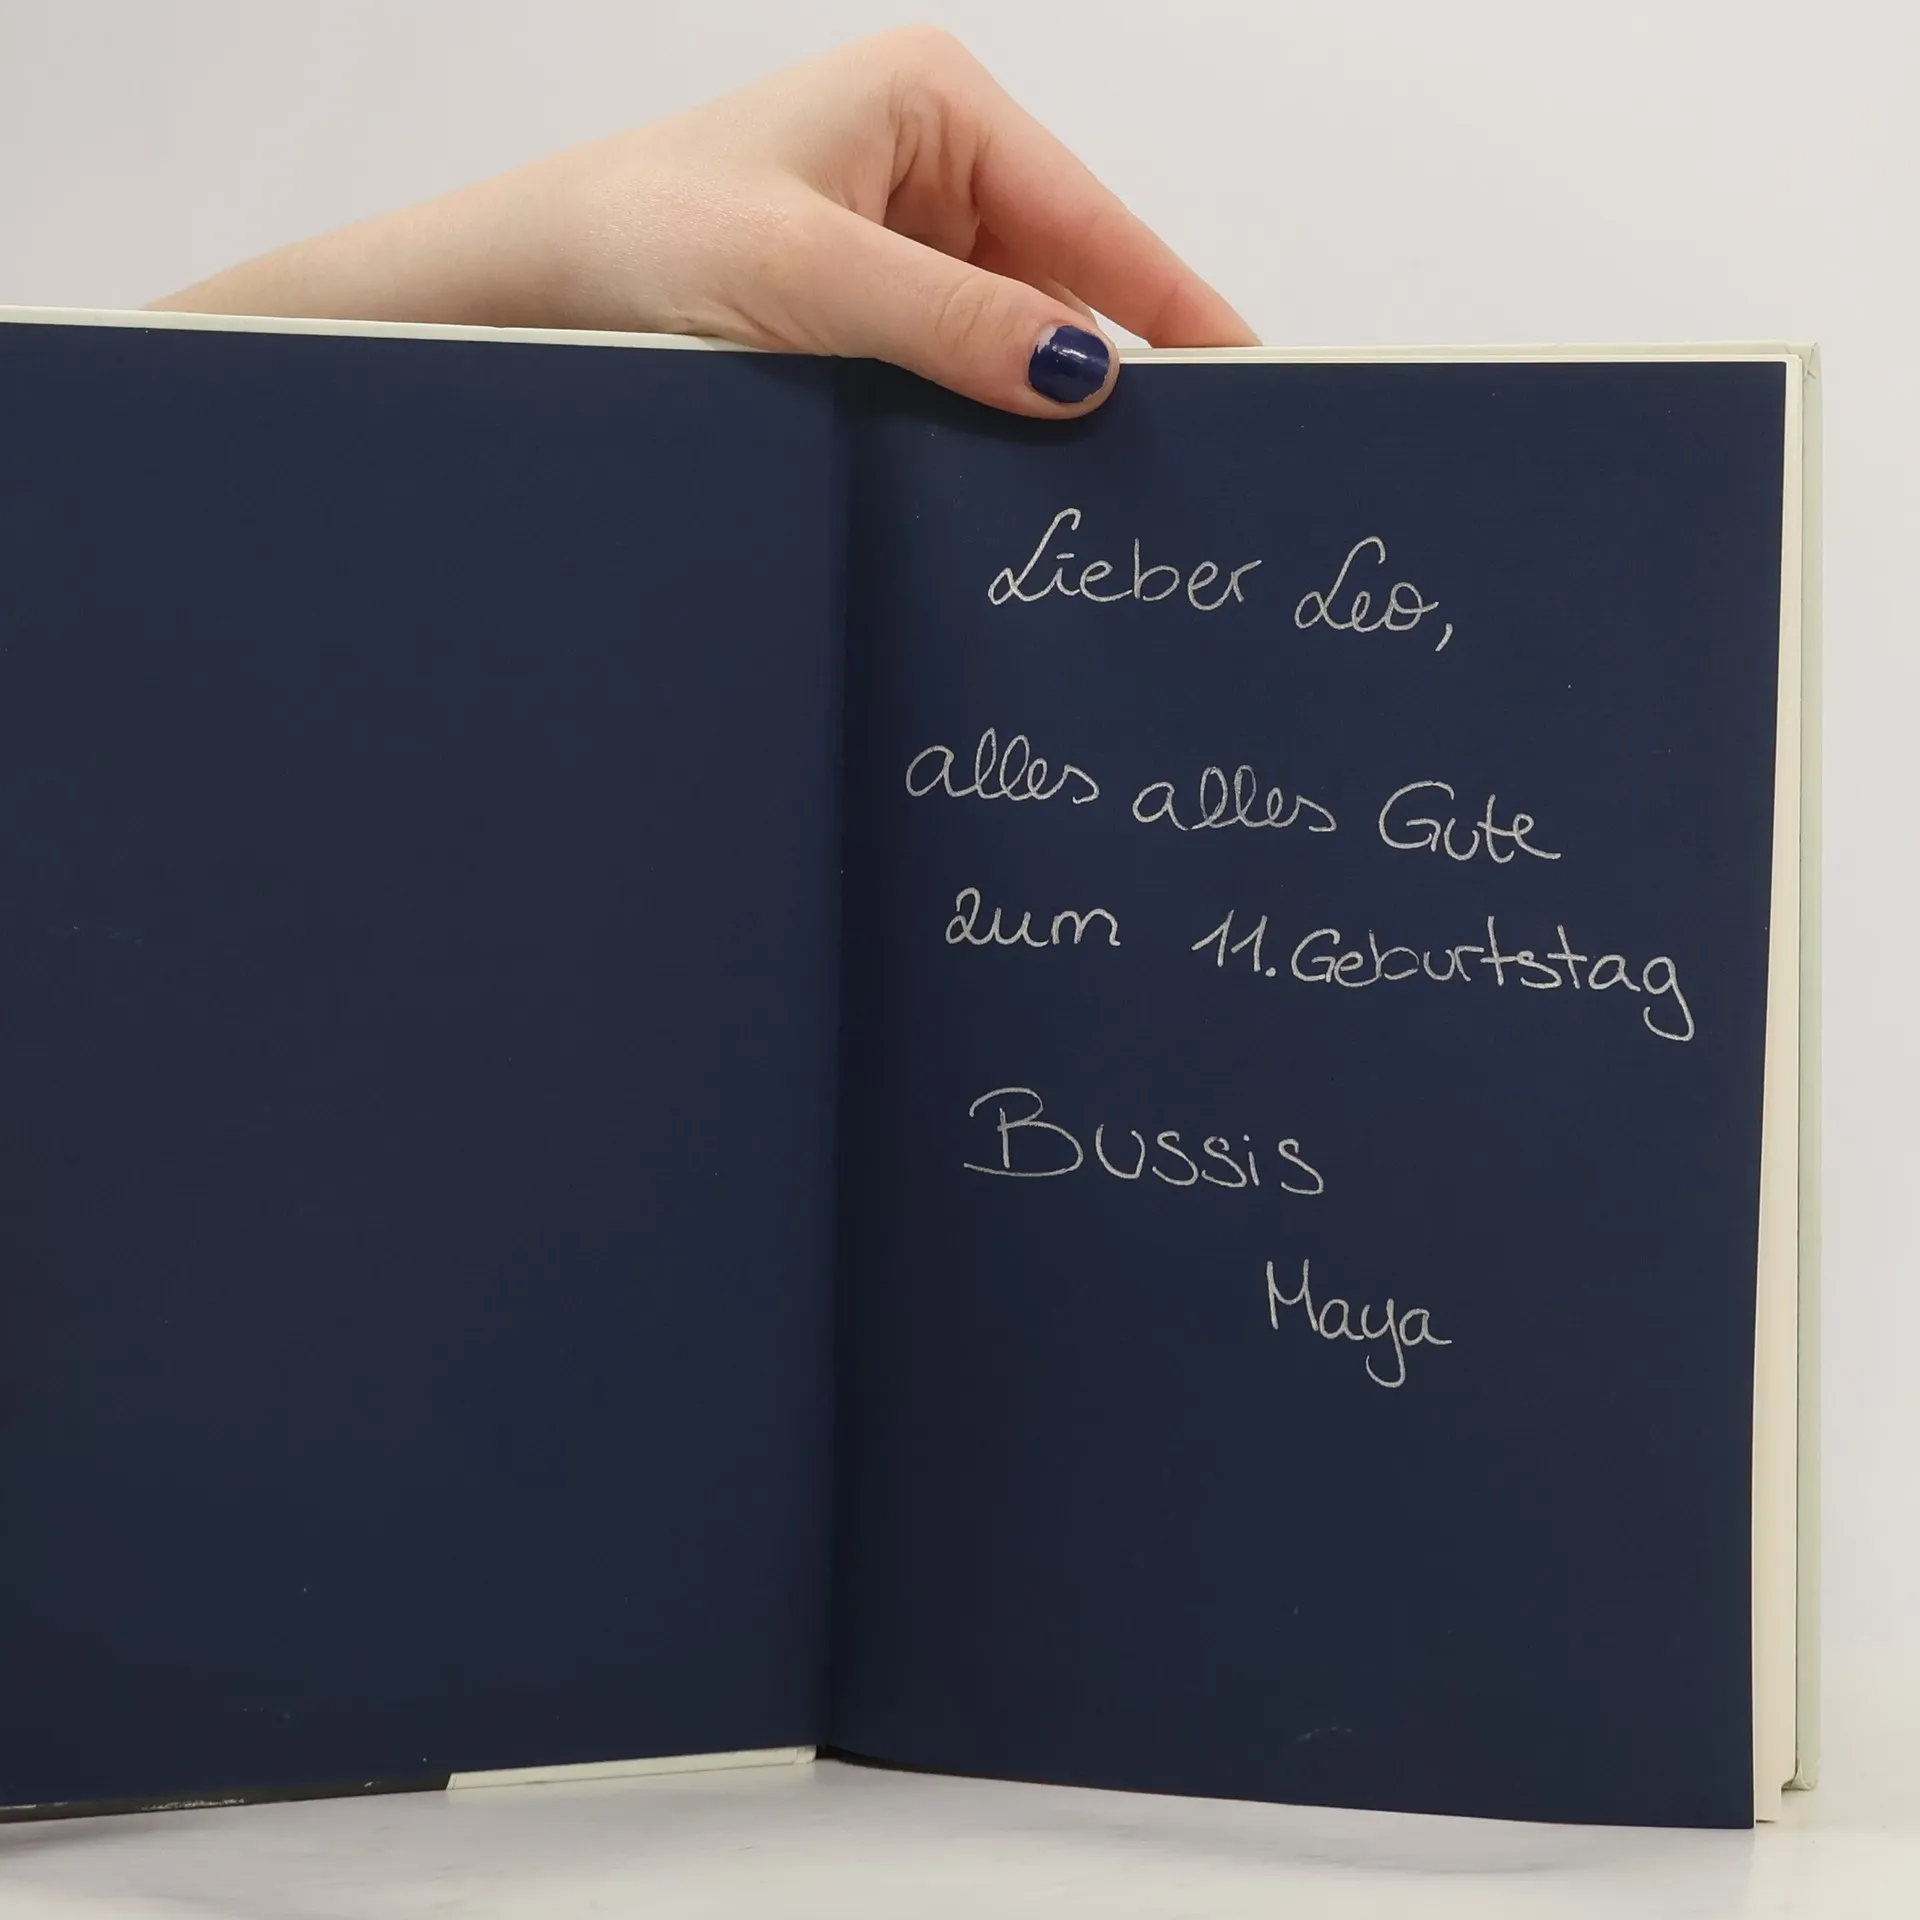 Lieber Leo,
alles alles Gute
zum 11. Geburtstag
Bussis
Maya